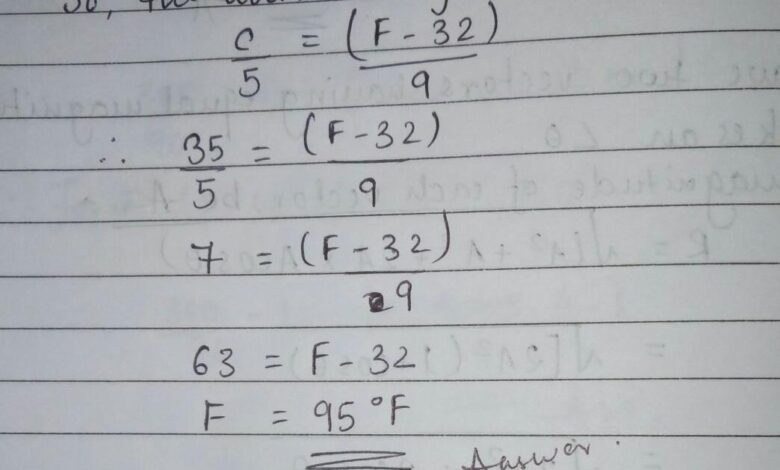 C/5 = (F - 32)/9
∴ 35/5 = (F - 32)/9
7 = (F - 32)/9
63 = F - 32
F = 95 °F
Answer.